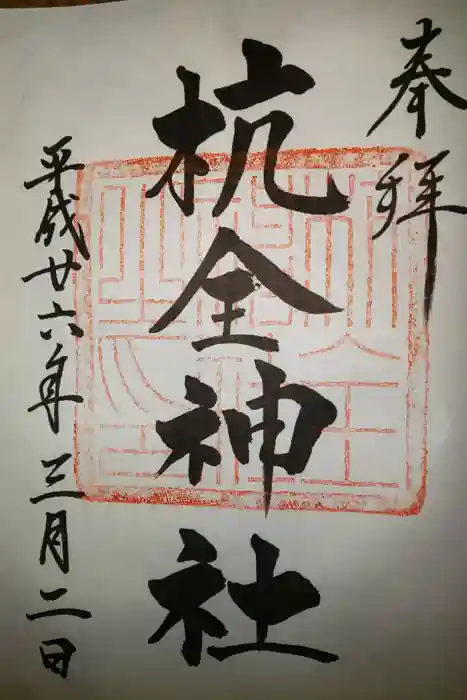 奉拝
杭全神社
平成廿六年三月二日